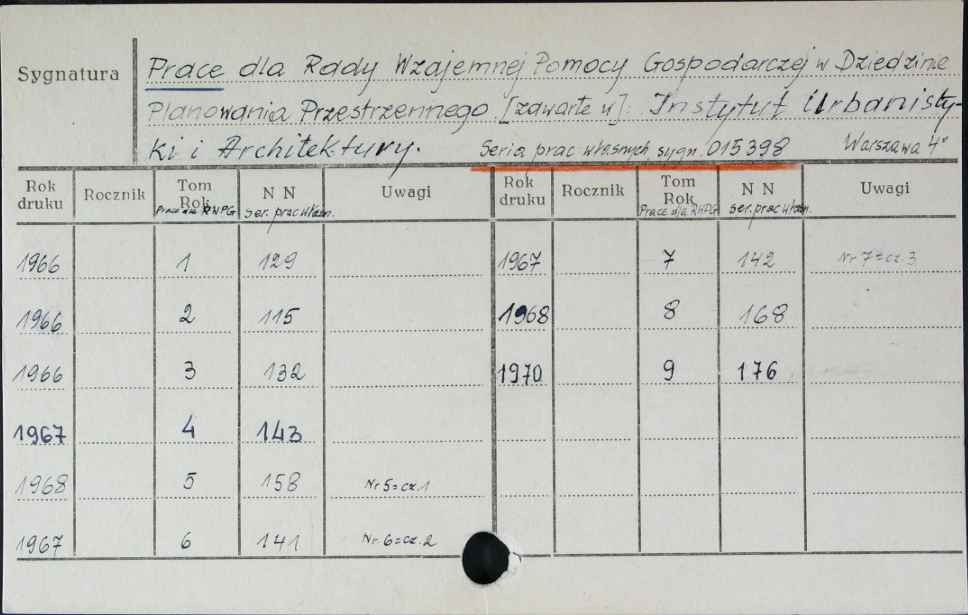 Sygnatura
Prace dla Rady Wzajemnej Pomocy Gospodarczej w Dziedzinie
Planowania Przestrzennego [zawarte w]: Instytut Urbanisty-
ki i Architektury. Seria prac własnych sygn. 015398 Warszawa 4°
Rok druku Rocznik Tom Rok Prace dla RWPG N N ser. prac własn. Uwagi Rok druku Rocznik Tom Rok Prace dla RWPG N N ser. prac własn. Uwagi
1966 1 129 1967 7 142 Nr 7=cz.3
1966 2 115 1968 8 168
1966 3 132 1970 9 176
1967 4 143
1968 5 158 Nr 5=cz.1
1967 6 141 Nr 6=cz.2